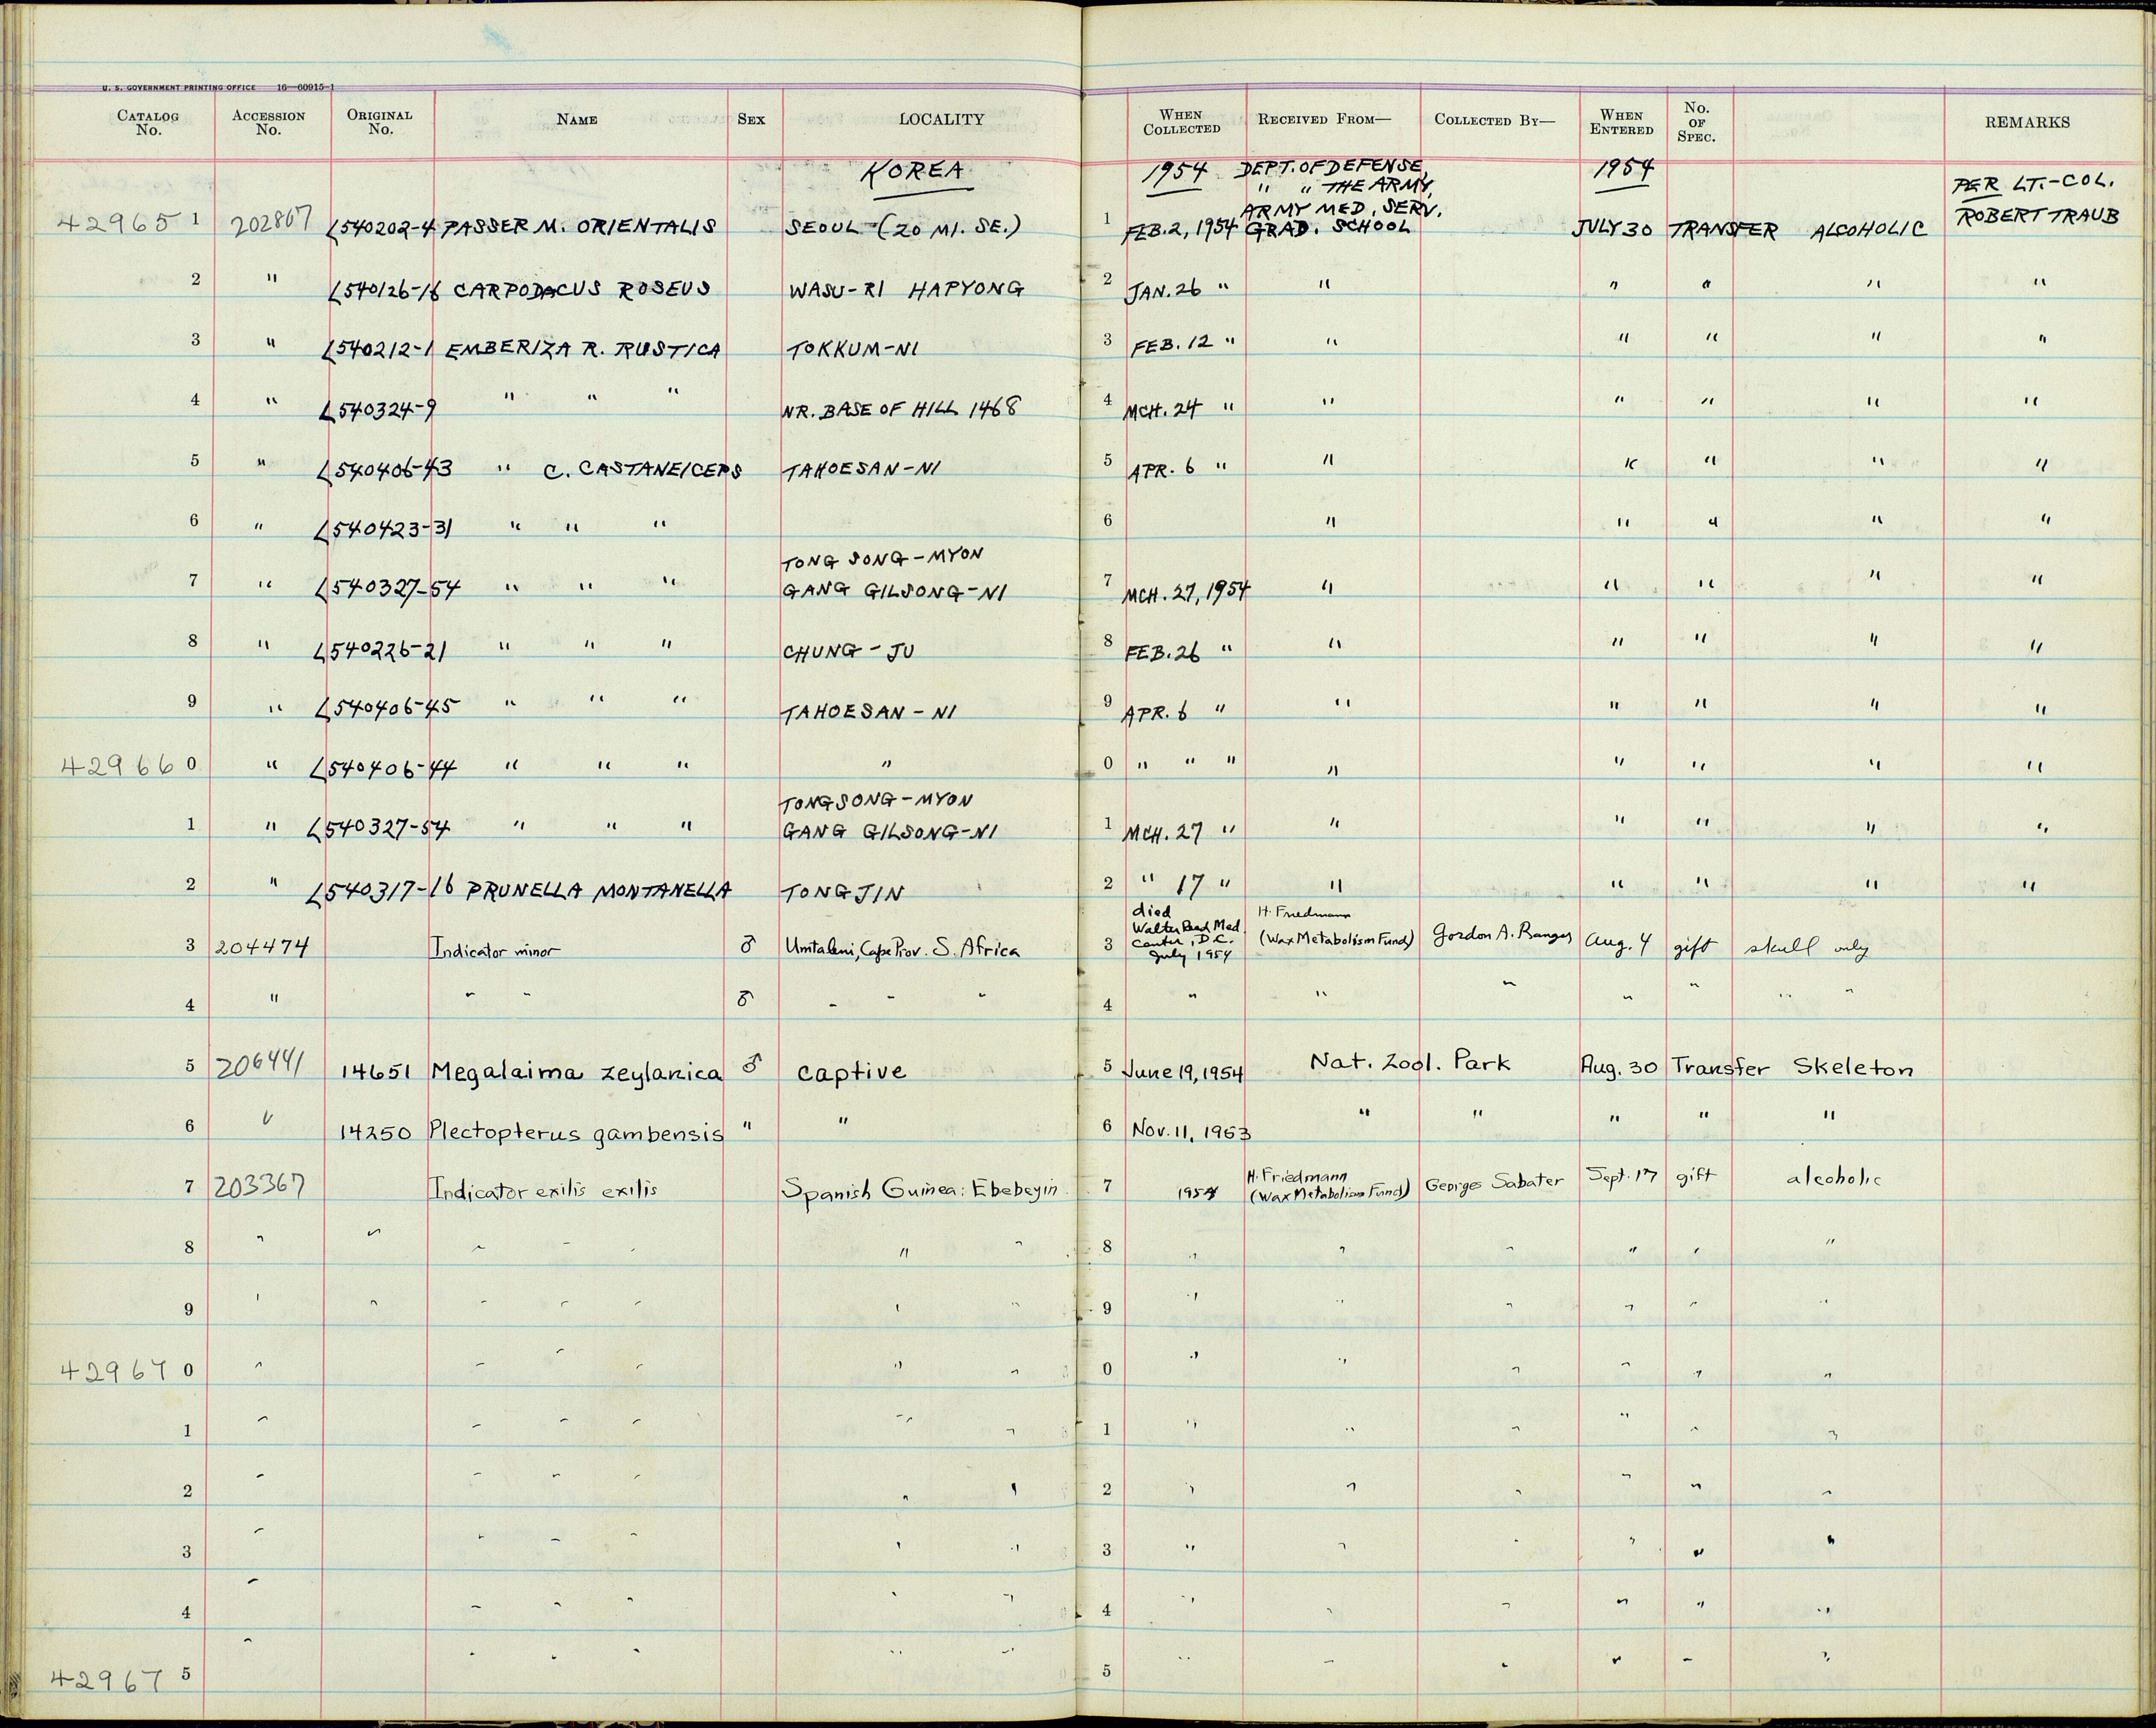 U. S. GOVERNMENT PRINTING OFFICE 16—60915-1
CATALOG No. ACCESSION No. ORIGINAL No. NAME SEX LOCALITY WHEN COLLECTED RECEIVED FROM— COLLECTED BY— WHEN ENTERED No. OF SPEC. REMARKS
KOREA 1954 DEPT. OF DEFENSE, 1954
" " THE ARMY, PER LT.-COL.
ARMY MED. SERV. ROBERT TRAUB
42965 1 202807 L540202-4 PASSER M. ORIENTALIS SEOUL (20 MI. SE.) 1 FEB. 2, 1954 GRAD. SCHOOL JULY 30 TRANSFER ALCOHOLIC
2 " L540126-16 CARPODACUS ROSEUS WASU-RI HAPYONG 2 JAN. 26 " " " " " "
3 " L540212-1 EMBERIZA R. RUSTICA TOKKUM-NI 3 FEB. 12 " " " " " "
4 " L540324-9 " " " NR. BASE OF HILL 1468 4 MCH. 24 " " " " " "
5 " L540406-43 " C. CASTANEICEPS TAHOESAN-NI 5 APR. 6 " " " " " "
6 " L540423-31 " " " 6 " " " " "
TONG SONG-MYON
7 " L540327-54 " " " GANG GILSONG-NI 7 MCH. 27, 1954 " " " " "
8 " L540226-21 " " " CHUNG-JU 8 FEB. 26 " " " " " "
9 " L540406-45 " " " TAHOESAN-NI 9 APR. 6 " " " " " "
42966 0 " L540406-44 " " " " 0 " " " " " " " "
TONGSONG-MYON
1 " L540327-54 " " " GANG GILSONG-NI 1 MCH. 27 " " " " " "
2 " L540317-16 PRUNELLA MONTANELLA TONGJIN 2 " 17 " " " " " "
died H. Friedmann
Walter Reed Med.
3 204474 Indicator minor ♂ Umtaleni, Cape Prov. S. Africa 3 Center, D.C. (Wax Metabolism Fund) Gordon A. Ranger Aug. 4 gift skull only
July 1954
4 " " " ♂ " " " 4 " " " " " " "
5 206441 14651 Megalaima zeylanica ♂ captive 5 June 19, 1954 Nat. Zool. Park Aug. 30 Transfer Skeleton
6 " 14250 Plectopterus gambensis " " 6 Nov. 11, 1953 " " " " "
H. Friedmann
7 203367 Indicator exilis exilis Spanish Guinea: Ebebeyin 7 1954 (Wax Metabolism Fund) Georges Sabater Sept. 17 gift alcoholic
8 " " " " " " " 8 " " " " " "
9 " " " " " " " 9 " " " " " "
42967 0 " " " " " " 0 " " " " " "
1 " " " " " " 1 " " " " " "
2 " " " " " " 2 " " " " " "
3 " " " " " " 3 " " " " " "
4 " " " " " " 4 " " " " " "
42967 5 " " " " " " 5 " " " " " "